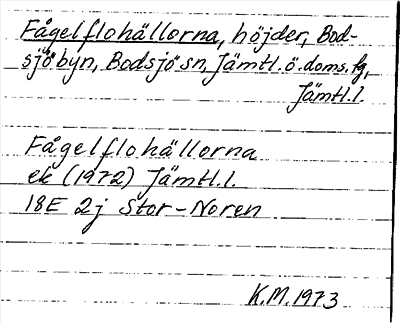 Fågelflohällorna, höjder, Bod-
sjöbyn, Bodsjö sn, Jämtl. ö. doms. fg,
Jämtl.l.
Fågelflohällorna
ek (1972) Jämtl.l.
18E 2j Stor-Noren
K.M. 1973